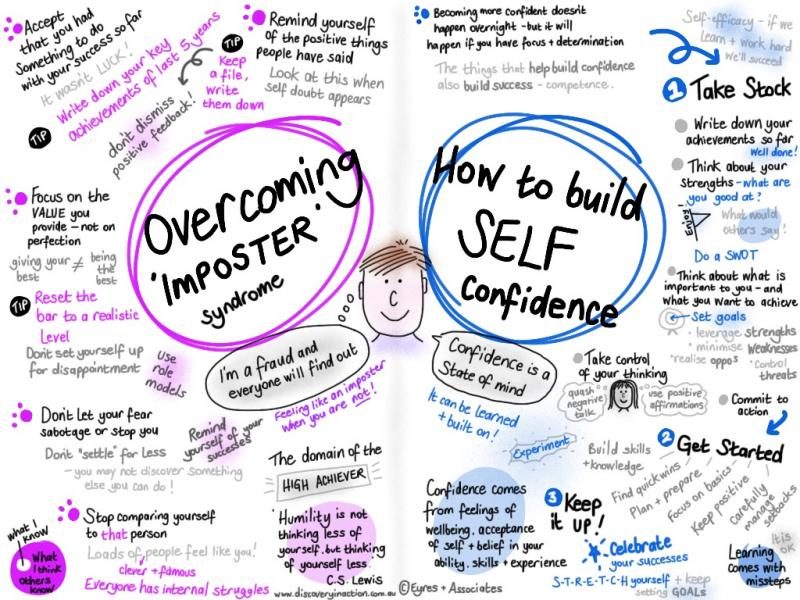 Accept
that you had
Something to do
with your success so far
It wasn't LUCK!
TIP
Write down your key
achievements of last 5 years
Remind yourself
of the positive things
people have said
TIP
Keep
a file,
write
them down
Look at this when
self doubt appears
don't dismiss
positive feedback!
Overcoming
'IMPOSTER'
syndrome
Focus on the
VALUE you
provide - not on
perfection
giving your best ≠ being the best
TIP
Reset the
bar to a realistic
Level
Don't set yourself up
for disappointment
Use
role
models
I'm a fraud and
everyone will find out
Feeling like an imposter
when you are not!
Don't Let your fear
sabotage or stop you
Don't "settle" for Less
- you may not discover something
else you can do!
Remind
yourself of your
successes
The domain of the
HIGH ACHIEVER
Stop comparing yourself
to that person
Loads of people feel like you!
clever + famous
Everyone has internal struggles
what I
know
What
I think
others
know
'Humility is not
thinking less of
yourself, but thinking
of yourself less.
C.S. Lewis
www.discoveryinaction.com.au
© Eyres + Associates
Becoming more confident doesn't
happen overnight - but it will
happen if you have focus + determination
The things that help build confidence
also build success - competence.
Self-efficacy - if we
Learn + work hard
We'll succeed
How to build
SELF
confidence
Confidence is a
State of mind
It can be learned
+ built on!
1 Take Stock
Write down your
achievements so far
Well done!
Think about your
strengths - what are
you good at?
What would
others say!
Do a SWOT
Think about what is
important to you - and
what you want to achieve
Set goals
leverage strengths
minimise weaknesses
'realise oppos
'control
threats
Take control
of your thinking
quash
negative
talk
use positive
affirmations
Commit to
action
2 Get Started
Experiment
Build skills
+ knowledge
Find quick wins
Plan + prepare
Focus on basics
Keep positive
Carefully
manage
setbacks
It is
OK
Learning
comes with
missteps
3 Keep
it up!
Celebrate
your successes
S-T-R-E-T-C-H yourself + keep
setting GOALS
Confidence comes
from feelings of
wellbeing, acceptance
of self + belief in your
ability, skills + experience